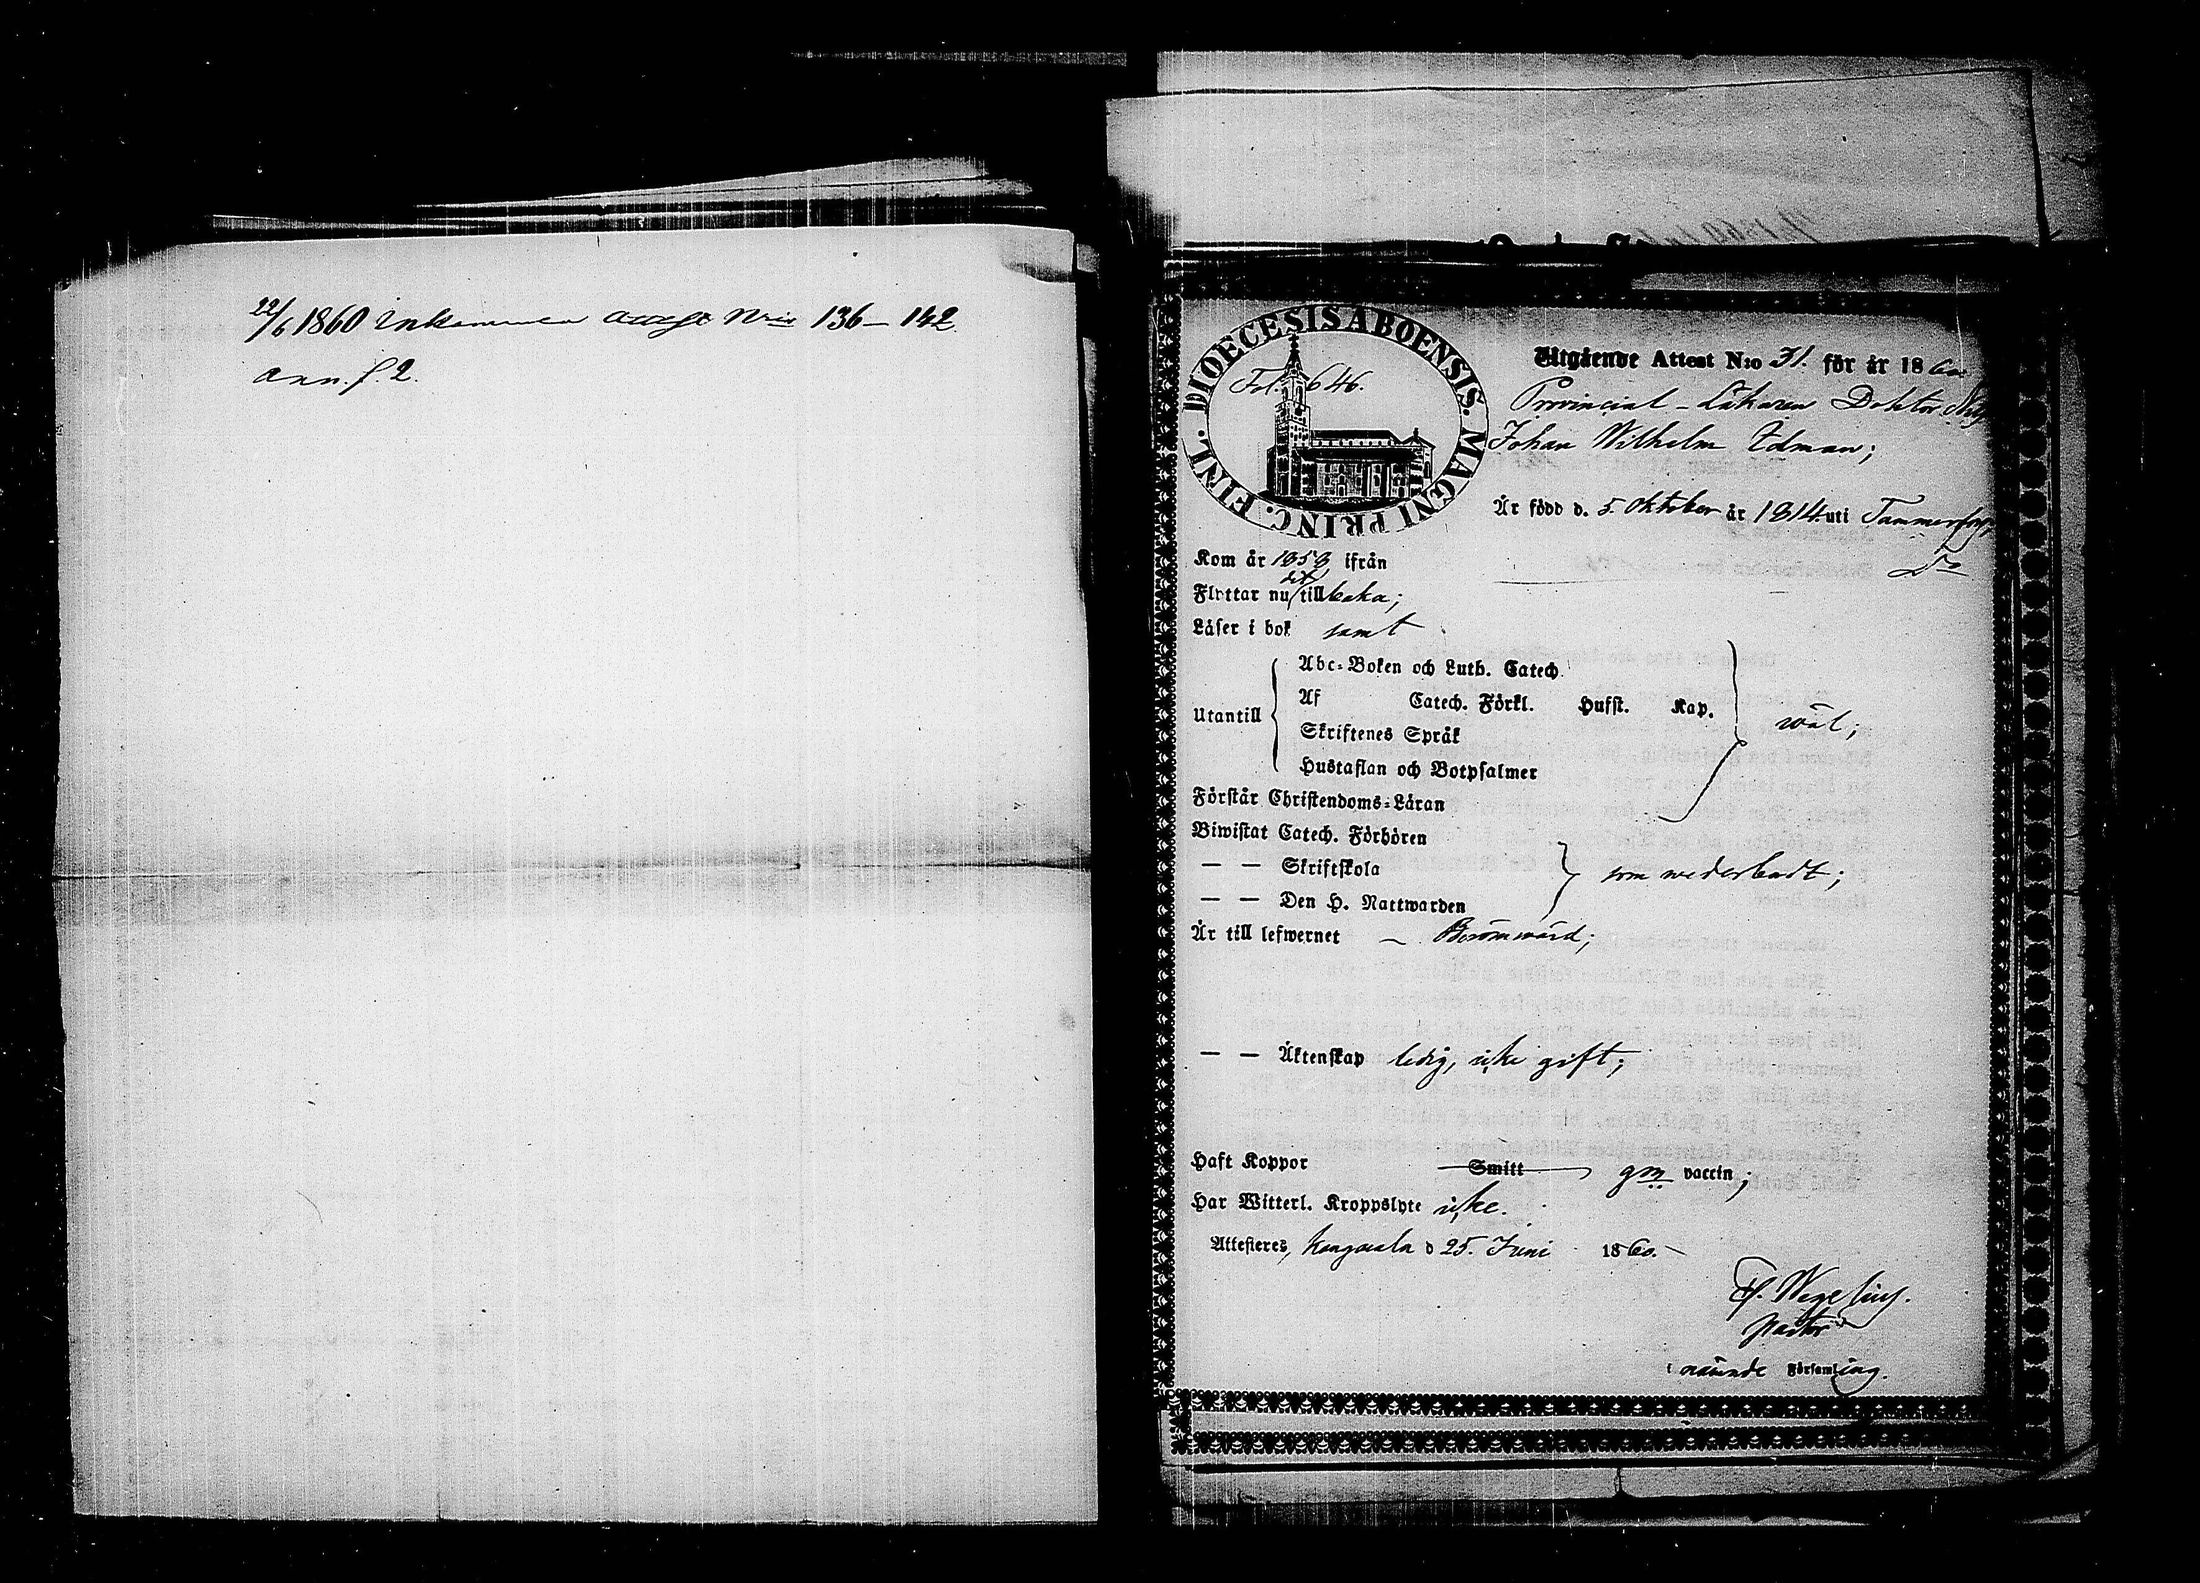 22/6 1860 Inkommen attest N:ris 136 – 142.
ann. f. 2.
DIOECESIS ABOENSIS. MAGNI PRINC. FINL.
Fol. 646.
Utgående Attest N:o 31. för år 1860
Provincial-Läkaren Doktor
Johan Wilhelm Edman;
Är född d. 5. Oktober år 1814. uti Tammerfors
Kom år 1858 ifrån Do
Flyttar nu dit tillbaka;
Läser i bok samt
Utantill
Abc-Boken och Luth. Catech.
Af Catech. Förkl. Husst. Kap.
Skriftenes Språk
Hustaflan och Botpsalmer
wäl;
Förstår Christendoms-Läran
Biwistat Catech. Förhören
— — Skriftskola
— — Den H. Nattwarden
som wederbordt;
Är till lefwernet – Berömwärd;
— — Äktenskap ledig, icke gift;
Haft Koppor Smitt gm vaccin;
Har Witterl. Kroppslyte icke.
Attesteres, Kangasala d 25. Juni 1860.
Wegelius.
Pastor
i nämnde Församling.